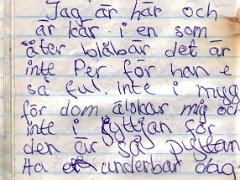 Jag är här och
är kär i en som
äter blåbär det är
inte Per för han e
så ful. inte i mygg
för dom älskar mig och
inte i gyttjan för
den är
Ha underbar dag